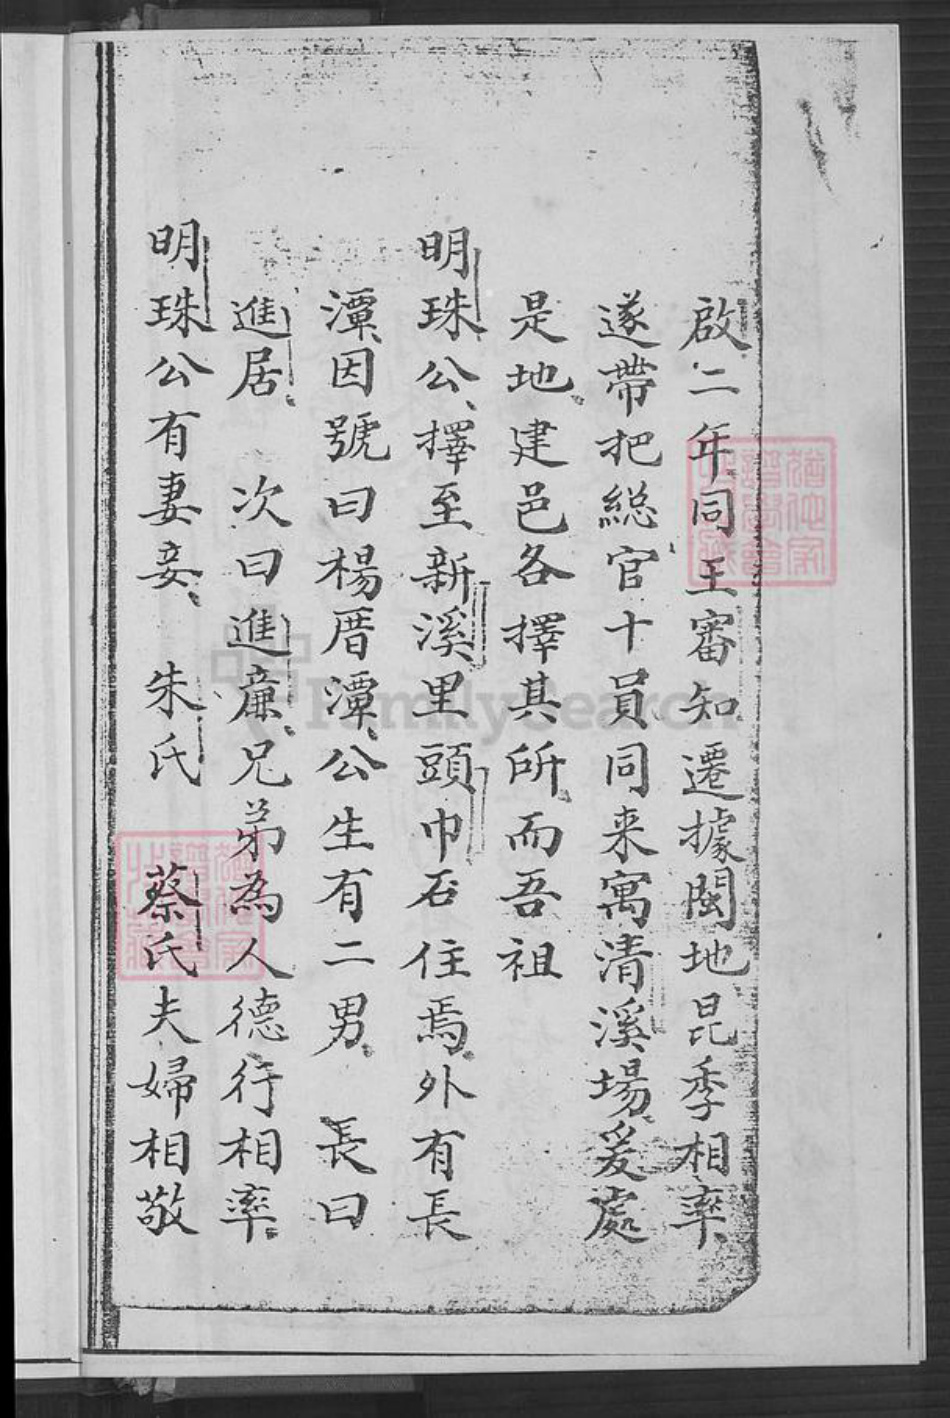 啟二年同王審知遷據閩地昆季相率
遂帶把総官十員同来寓清溪場爰處
是地建邑各擇其所而吾祖
明珠公擇至新溪里頭巾石住焉外有長
潭因號曰楊厝潭公生有二男 長曰
進居 次曰進㢘兄弟為人德行相率
明珠公有妻妾 朱氏 蔡氏夫婦相敬
FamilySearch